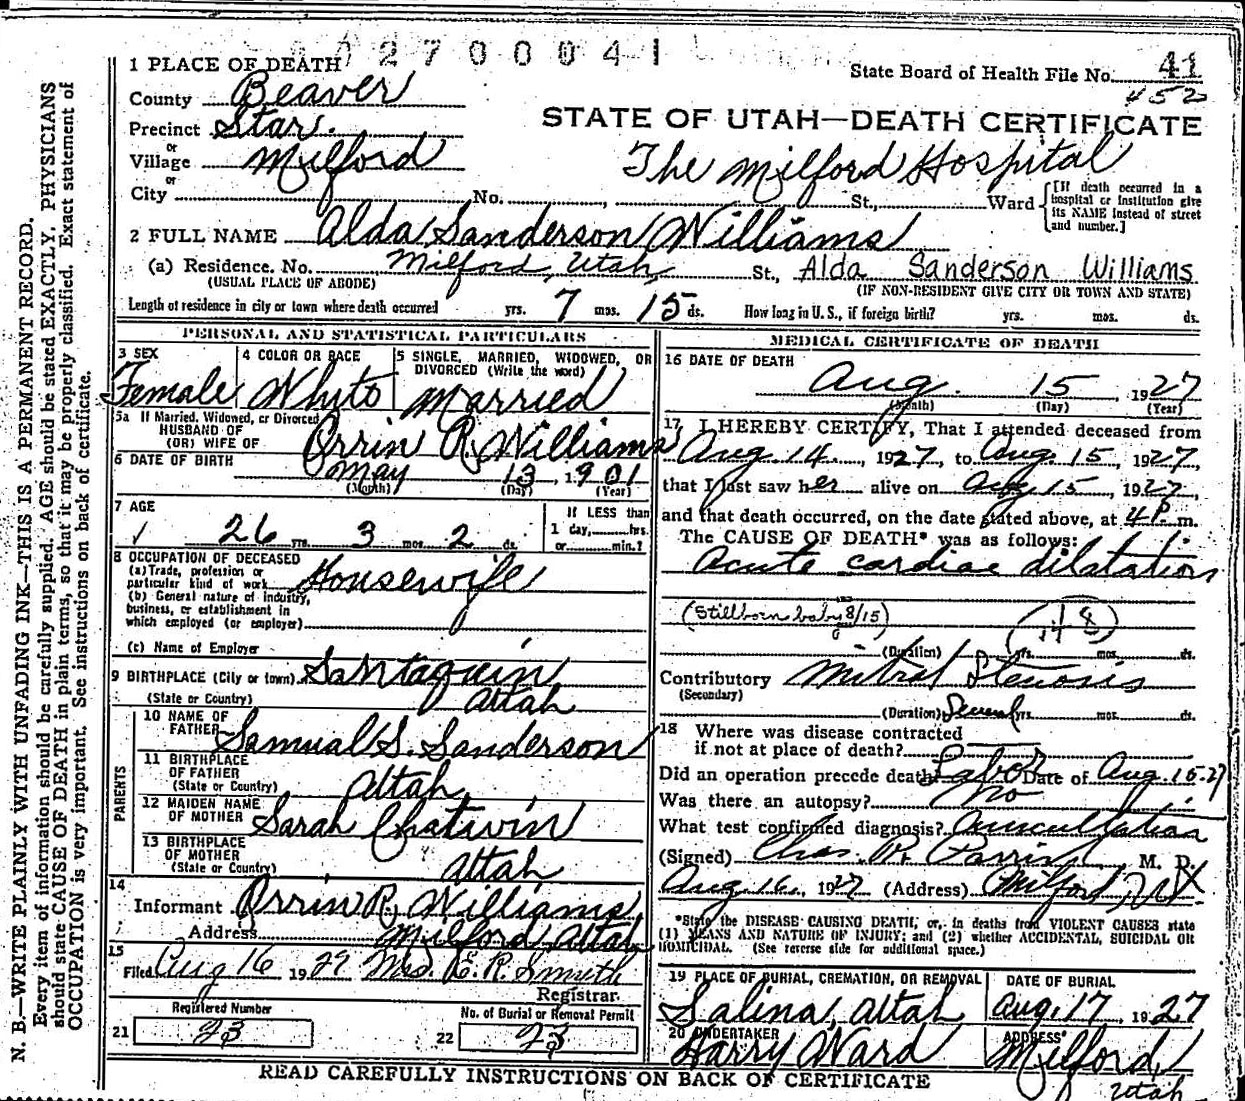 2700041
1 PLACE OF DEATH
State Board of Health File No. 41
452
County Beaver
STATE OF UTAH—DEATH CERTIFICATE
Precinct Star.
or
Village Milford
The Milford Hospital
or
City No. , St., Ward
[If death occurred in a
hospital or institution give
its NAME instead of street
and number.]
2 FULL NAME Alda Sanderson Williams
(a) Residence. No. Milford, Utah St., Alda Sanderson Williams
(USUAL PLACE OF ABODE) (IF NON-RESIDENT GIVE CITY OR TOWN AND STATE)
Length of residence in city or town where death occurred yrs. 7 mos. 15 ds. How long in U. S., if foreign birth? yrs. mos. ds.
PERSONAL AND STATISTICAL PARTICULARS
3 SEX
Female
4 COLOR OR RACE
Whyto
5 SINGLE, MARRIED, WIDOWED, OR
DIVORCED (Write the word)
Married
5a If Married, Widowed, or Divorced
HUSBAND OF
(OR) WIFE OF Orrin R. Williams
6 DATE OF BIRTH May 13, 1901
(Month) (Day) (Year)
7 AGE
26 yrs. 3 mos. 2 ds.
If LESS than
1 day, hrs.
or min.?
8 OCCUPATION OF DECEASED
(a) Trade, profession or
particular kind of work Housewife
(b) General nature of industry,
business, or establishment in
which employed (or employer)
(c) Name of Employer
9 BIRTHPLACE (City or town) Santaquin
(State or Country) Utah
PARENTS
10 NAME OF
FATHER Samual S. Sanderson
11 BIRTHPLACE
OF FATHER
(State or Country) Utah
12 MAIDEN NAME
OF MOTHER Sarah Chatwin
13 BIRTHPLACE
OF MOTHER
(State or Country) Utah
14
Informant Orrin R. Williams
Address Milford Utah
15
Filed Aug 16 1927 Mrs. E. R. Smith
Registrar.
Registered Number
21 23
No. of Burial or Removal Permit
22 23
MEDICAL CERTIFICATE OF DEATH
16 DATE OF DEATH
Aug. 15 1927
(Month) (Day) (Year)
17 I HEREBY CERTIFY, That I attended deceased from
Aug 14, 1927, to Aug. 15, 1927,
that I last saw her alive on Aug 15, 1927,
and that death occurred, on the date stated above, at 4 P. m.
The CAUSE OF DEATH* was as follows:
Acute cardiac dilatation
(Stillborn baby 8/15)
(Duration) yrs. mos. ds.
Contributory Mitral Stenosis
(Secondary)
(Duration) Several yrs. mos. ds.
18 Where was disease contracted
if not at place of death?
Did an operation precede death? Labor Date of Aug. 15-27
Was there an autopsy? no
What test confirmed diagnosis? Auscultation
(Signed) Chas. R. Parrish, M. D.
Aug 16, 1927 (Address) Milford, Ut
*State the DISEASE CAUSING DEATH, or, in deaths from VIOLENT CAUSES state
(1) MEANS AND NATURE OF INJURY; and (2) whether ACCIDENTAL, SUICIDAL OR
HOMICIDAL. (See reverse side for additional space.)
19 PLACE OF BURIAL, CREMATION, OR REMOVAL
Salina, Utah
DATE OF BURIAL
Aug. 17, 1927
20 UNDERTAKER
Harry Ward
ADDRESS
Milford,
Utah
READ CAREFULLY INSTRUCTIONS ON BACK OF CERTIFICATE
N. B.—WRITE PLAINLY WITH UNFADING INK—THIS IS A PERMANENT RECORD.
Every item of information should be carefully supplied. AGE should be stated EXACTLY. PHYSICIANS
should state CAUSE OF DEATH in plain terms, so that it may be properly classified. Exact statement of
OCCUPATION is very important. See instructions on back of certificate.